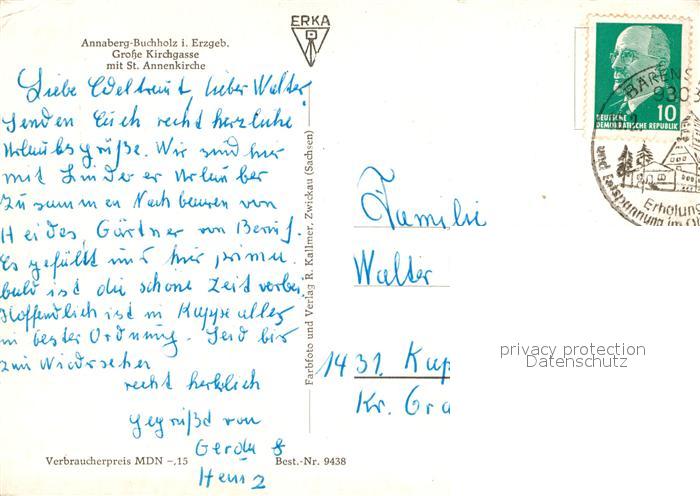 ERKA
Annaberg-Buchholz i. Erzgeb.
Große Kirchgasse
mit St. Annenkirche
Liebe Edeltraut, lieber Walter!
Senden Euch recht herzliche
Urlaubsgrüße. Wir sind hier
mit Linder er Urlauber
zusammen Nachbauren von
Heides, Gärtner von Beruf.
Es gefällt uns hier prima.
bald ist die schöne Zeit vorbei.
Hoffendlich ist in Kappe alles
in bester Ordnung. Seid bis
zum Wiedersehen
recht herzlich
gegrüßd von
Gerda &
Heinz
Verbraucherpreis MDN -,15
Best.-Nr. 9438
Farbfoto und Verlag R. Kallmer, Zwickau (Sachsen)
Familie
Walter
1431 Kap
Kr. Gra
DEUTSCHE
DEMOKRATISCHE REPUBLIK
10
BÄRENS
9303
Erholung
und Entspannung im
privacy protection
Datenschutz